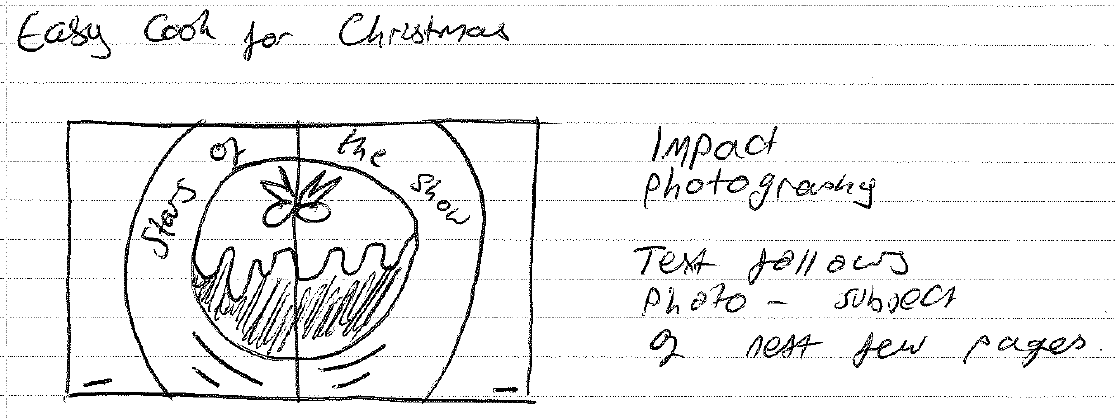 Easy Cook for Christmas
Stars of the show
Impact
photography
Text follows
photo - subject
of next few pages.